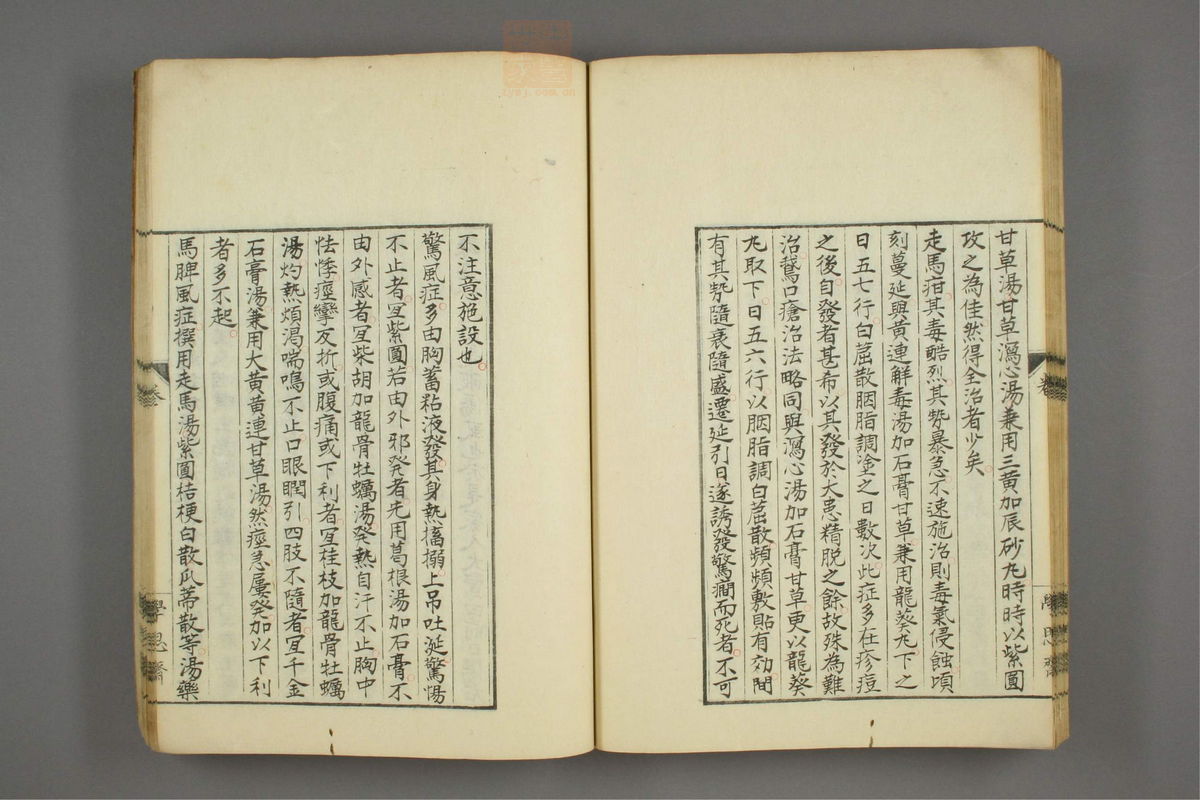 甘草湯甘草瀉心湯兼用三黃加辰砂丸時時以紫圓
攻之為佳然得全治者少矣
走馬疳其毒酷烈其勢暴急不速施治則毒氣侵蝕頃
刻蔓延與黃連解毒湯加石膏甘草兼用龍葵丸下之
日五七行白茋散胭脂調塗之日數次此症多在疹痘
之後自發者甚希以其發於大患精脫之餘故殊為難
治鵞口瘡治法略同與瀉心湯加石膏甘草更以龍葵
丸取下日五六行以胭脂調白茋散頻頻敷貼有効間
有其勢隨衰隨盛遷延引日遂誘發驚癇而死者不可
不注意施設也
驚風症多由胸蓄粘液發其身熱搐搦上吊吐涎驚惕
不止者宜紫圓若由外邪発者先用葛根湯加石膏不
由外感者宜柴胡加龍骨牡蠣湯発熱自汗不止胸中
怯悸痙攣反折或腹痛或下利者宜桂枝加龍骨牡蠣
湯灼熱煩渴喘鳴不止口眼瞤引四肢不隨者宜千金
石膏湯兼用大黃黃連甘草湯然痙急屢発加以下利
者多不起
馬脾風症撰用走馬湯紫圓桔梗白散瓜蒂散等湯藥
卷
學思齋